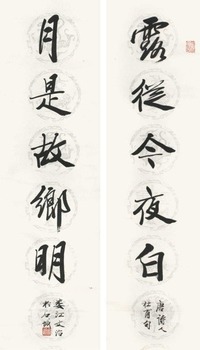 露從今夜白
唐詩人
杜甫句
月是故鄉明